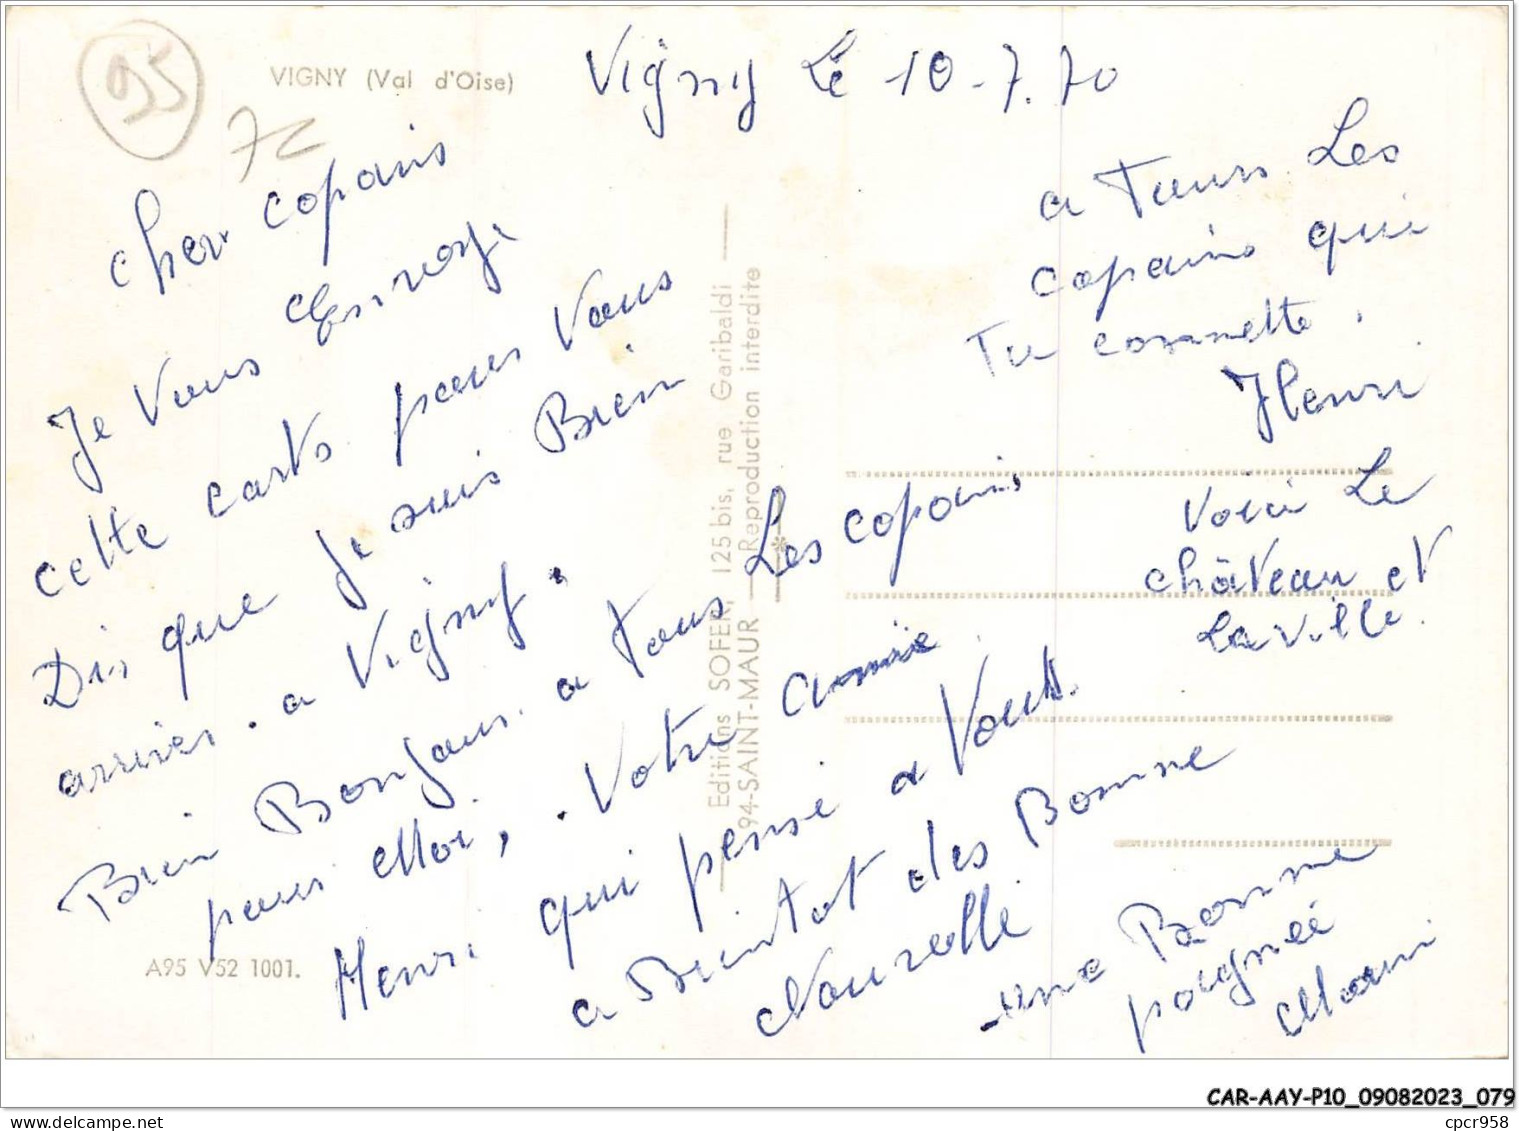 95
VIGNY (Val d'Oise)
Vigny Le 10-7.70
72
cher copains
Je Vous Envoye
cette carte pour Vous
Dir que Je suis Bien
arriver. a Vigny.
Bien Bonjour. a tous Les copains
pour Moi, . Votre amie
Henri qui pense a Vous.
a Bientot des Bonne
Nouvelle
a Tous Les
copains qui
Tu connette.
Henri
Voici Le
château et
La Ville.
une Bonne
poignée
Main
Editions SOFER, 125 bis, rue Garibaldi
94-SAINT-MAUR — Reproduction interdite
A95 V52 1001.
CAR-AAY-P10_09082023_079
www.delcampe.net
cpcr958